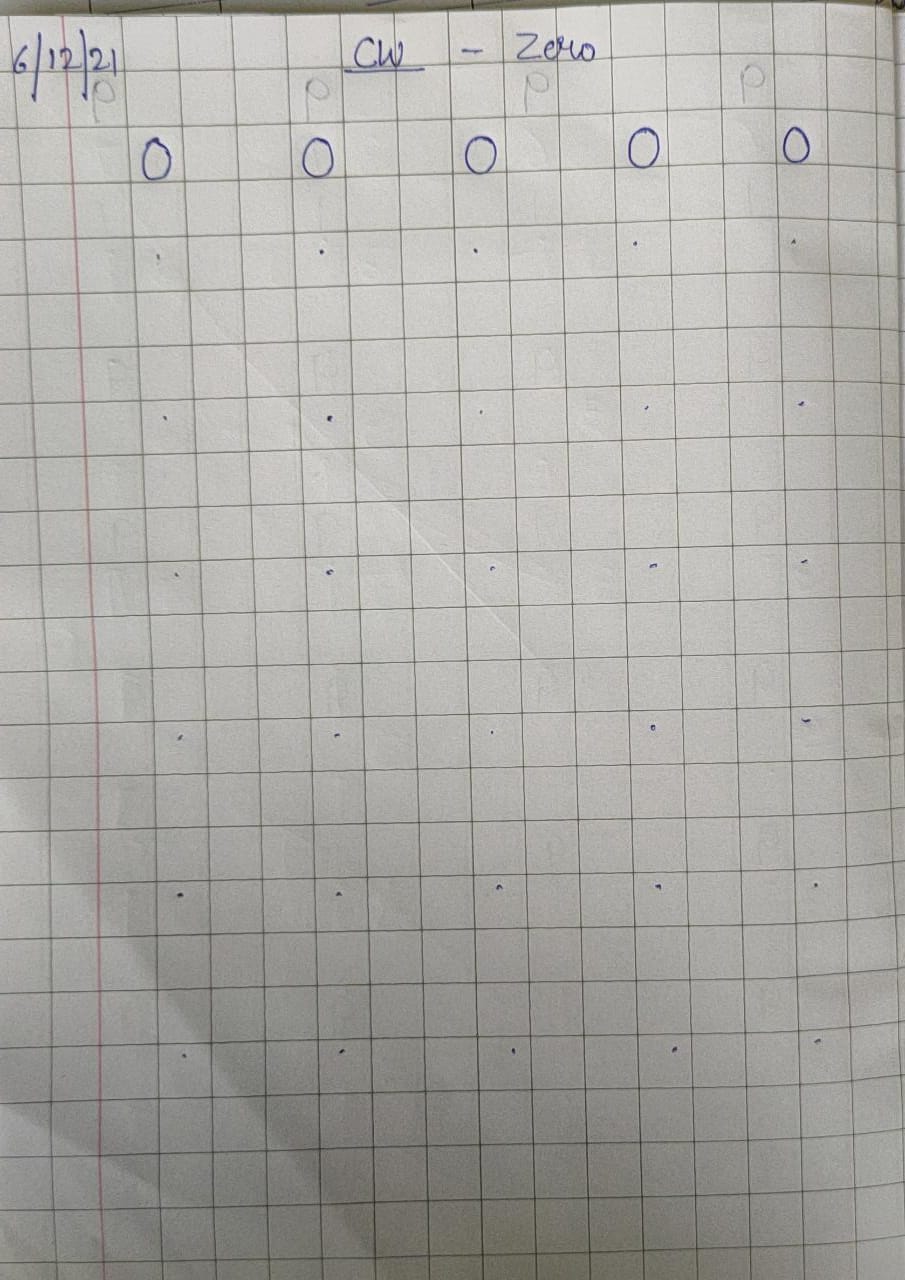 6/12/21 CW - Zero
P P P P
0 0 0 0 0